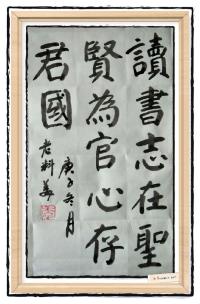 讀書志在聖
賢為官心存
君國
庚子冬月
老科姜